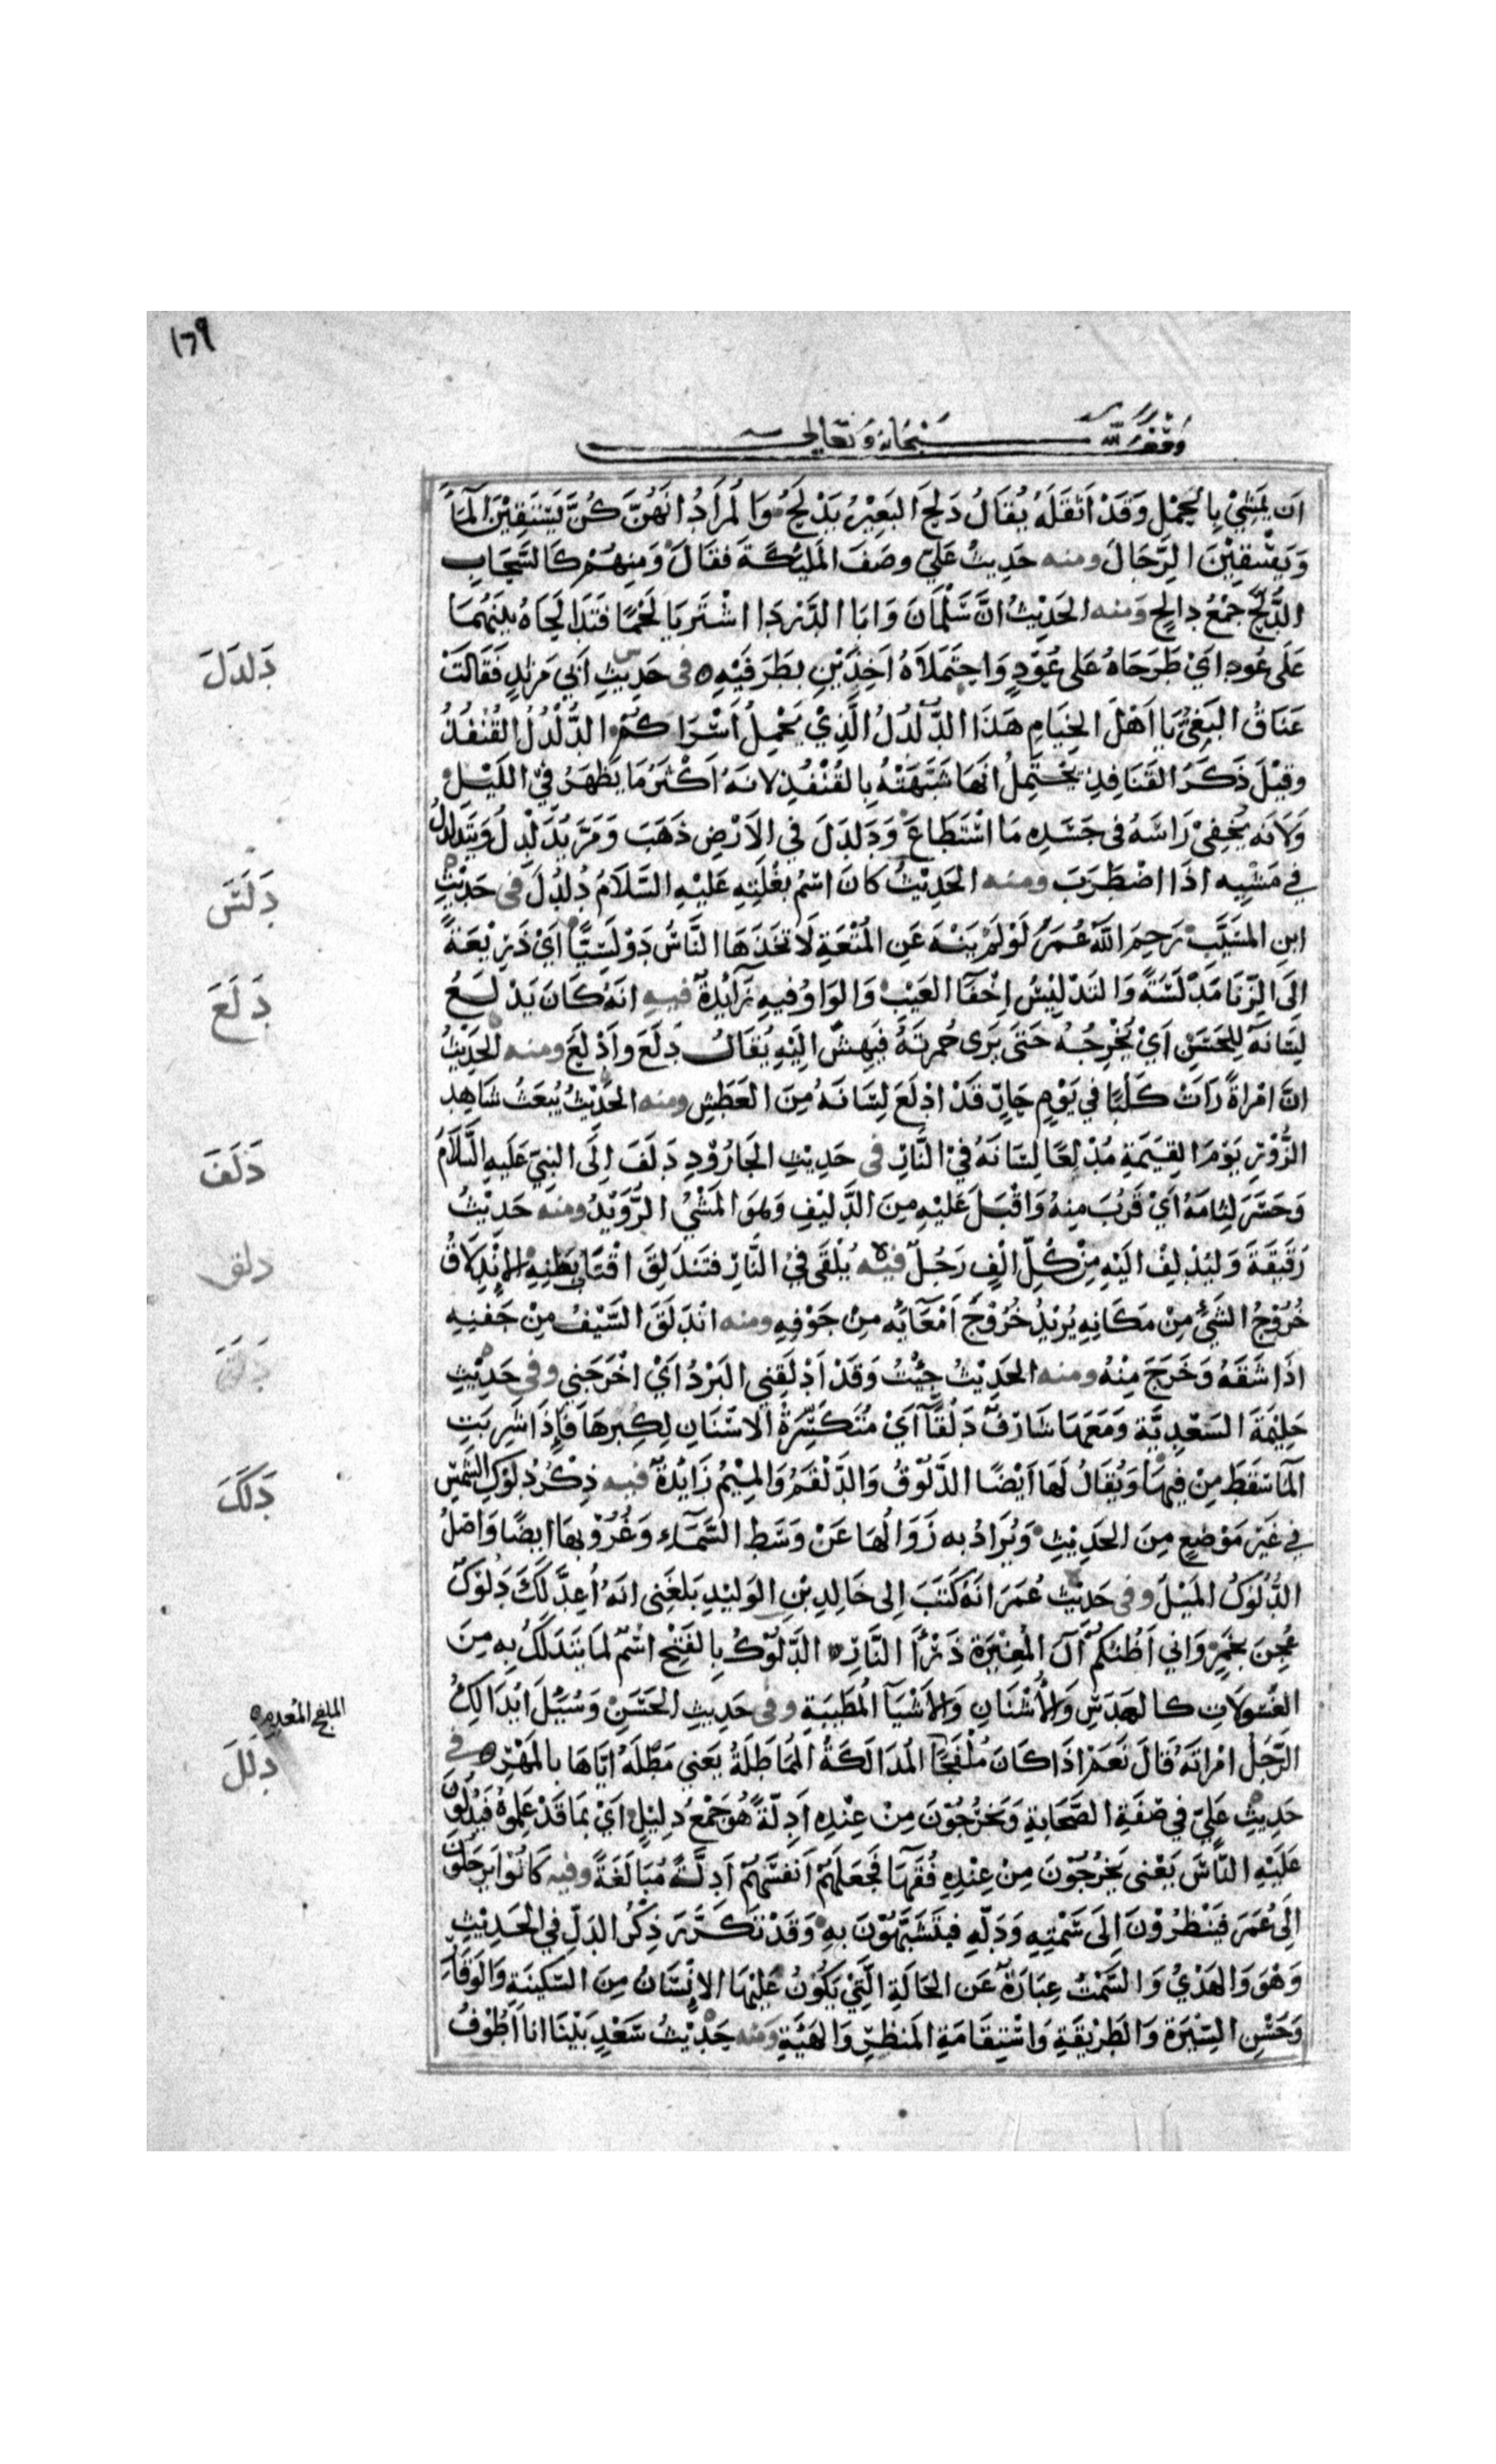 ١٦٩
وقف لله سبحانه وتعالى
اَن يَمْشِيْ بِالحِمْلِ وَقَدْ اَثْقَلَهُ يُقَالُ دَلَحَ البَعِيْرُ يَدْلَحُ وَالمُرَادُ انَهُنَّ كُنَّ يَسْتَقِيْنَ المَآءَ
وَيَسْقِيْنَ الرِّجَالَ ومنه حَدِيثُ عَلِيّ وصَفَ المَلٰيِكَةَ فقَالَ وَمِنهُمْ كَالسَّحَابِ
الدُّلَّحِ جَمْعُ دالِحٍ وَمنه الحَدِيْثُ انَّ سَلْمَانَ وَابَا الدَّرْدَا اشْتَرَيَا لَحْمًا فَتَدَالَحَاهُ بَيْنَهُمَا
عَلَى عُودٍ ايْ طَرَحَاهُ عَلى عُوْدٍ وَاحتَمَلاَهُ اٰخِذَيْنِ بطَرَفَيْهِ ٥ فى حَدِيثِ اَبي مَرثدٍ فَقَالَتْ
دَلدَلَ
عَنَاقُ البَغِيُّ يَا اَهْلَ الخِيَامِ هَذَا الدُّلْدُلُ الَّذِيْ يَحْمِلُ اَسْرَاكُمْ الدُّلْدُلُ القُنْفُذُ
وقيْلَ ذَكَرُ القَنَافِذِ يَحْتَمِلُ انَهَا شَبَّهَتْهُ بِالقُنْفُذِ لانَهُ اَكْثَرُ مَا يَظْهَرُ فِي اللَيْلِ
وَلاَنَه يُخْفِيْ رَاسَهُ فى جَسَدِهِ مَا اسْتَطَاعَ وَدَلدَلَ في الاَرْضِ ذَهَبَ وَمَرَّ يَدَلْدِلُ وَيَتَدَلدَلُ
في مَشْيِهِ اذَا اضْطَرَبَ ومنه الحَدِيْثُ كانَ اسْمُ بَغْلَتِهِ عَلَيْهِ السَّلَامُ دُلدُلَ فى حَدِيْثِ
دَلَسَ
ابنِ المسَيَّبْ رَحِمَ اللَّهُ عُمَرُ لَوْلَمْ يَنْهَ عَنِ المُتْعَةِ لَاتخَذَهَا النَّاسُ دَوْلَسِيًّا اَيْ ذَرِيْعَةً
اِلَى الزِّنَا مُدَلّسَةً وَالتَدْلِيْسُ اِخْفَآ العَيْبْ وَالوَاوُ فيهِ زَآيدَةٌ فيهِ انَهُ كَانَ يَدْلَعُ
دَلَعَ
لِسَانَهُ لِلحَسَنِ اَيْ يُخْرِجُهُ حَتَى يَرَى حُمرَتَهُ فَيَهِشّ اِلَيْهِ يُقَالُ دَلَعَ واَدْلَعَ ومنه الحَدِيْثُ
انَّ امْرَاةً رَاَتْ كَلْبًا في يَوْمٍ حَارٍّ قَدْ ادْلَعَ لِسَانَهُ مِنَ العَطَشِ ومنه الحَدِيْثُ يُبعَثُ شَاهِد
الزُّوْرِ يَوْمَ القِيَمَةِ مُدْلِعًا لِسَانَهُ فِي النَّارِ فى حَدِيْثِ الجَارُوْدِ دَلَفَ اِلَى النبيّ عَليهِ السَّلاَمُ
دَلَفَ
وَحَسَرَ لِثامَهُ اَيْ قَرُبَ مِنهُ وَاقْبَلَ عَلَيْهِ مِنَ الدَّلِيْفِ وهوَ المَشْيُ الرُّوَيْدُ ومنه حَدِيْثُ
رُقَيْقَةَ وَليَدْلِفْ اليَهِ مِنْ كُلِّ الفٍ رَجُلٌ فيْه يُلْقَى فِيْ النَّارِ فتَنْدَلِقَ اقْتَابُ بَطنِهِ الانْدِلَاقُ
دلق
خُرُوْجُ الشَيْءُ مِنْ مَكَانِهِ يُرِيْدُ خُرُوْجَ اَمْعَآئِه مِنْ جَوْفِهِ ومنه انْدَلَقَ السَّيْفُ مِنْ جَفنِهِ
اذَا شَقَّهُ وَخَرَجَ مِنْهُ ومنه الحَدِيْثُ جِئْتُ وَقَدْ اَدْلَقَنِي البَرْدُ اَيْ اخْرَجَنِي وفي حَدِيْثِ
حَلِيْمَةَ السَعْدِيَّةِ وَمَعَهَا شَارِفٌ دَلْقَآءُ اَيْ مُتَكَسِّرَةُ الاسْنَانِ لِكِبَرِهَا فَاِذَا شَرِبَتِ
المَآ سَقَطَ مِنْ فِيهَا وَيُقَالُ لَهَا اَيْضًا الدَّلُوْقُ وَالدَّلْقَمُ وَالمِيْمُ زَايْدَةٌ فيه ذِكْرُ دُلُوْكِ الشَّمْسِ
دَلَكَ
في غَيْرِ مَوْضِعٍ مِنَ الحَدِيْثِ وَيُرَادُ به زَوَالُهَا عَنْ وَسَطِ السَّمَآءِ وَغُرُوْبهَا ايضًا وَاصْلُ
الدُّلُوْكُ المَيْلُ وفى حَدِيْث عُمَرَ انَهُ كَتَبَ اِلى خَالِدِ بْنِ الوَليْدِ بَلغَنِى انَهُ اُعِدَّ لَكَ دَلُوْكٌ
عُجِنَ بخَمْرٍ وَاني اَظُنُكُمْ آلَ المُغِيْرَةِ ذَرْأَ النَّارِ ٥ الدَّلُوْكُ بِالفَتْحِ اسْمٌ لمَا يَتَدَلَكُ بِهِ مِنَ
الغَسُولاَتِ كالعَدَسِ وَالْاُشْنَانِ وَالاَشْيَآ المُطَيِبَةِ وفى حَدِيثِ الحَسَنِ وَسُئِلَ ايُدَالِكُ
الرَّجُلُ امْرَاتَهُ قَالَ نَعَمْ اذَا كَانَ مُلْفَجًا المُدَالَكَةُ المُمَاطَلَةُ يَعنِي مَطْلَهُ ايَّاهَا بالمَهْرِ ٥ في
الملفج المُعدم ٥
دَلَلَ
حَدِيثِ عَلِيّ في صِفَةِ الصَّحَابَةِ وَيَخْرُجُوْنَ مِنْ عِنْدِهِ اَدِلَّةً هُوَ جَمْعُ دلِيْلٍ اَيْ بمَا قَدْ عَلِمُوْهُ فَيَدُلُّوْنَ
عَلَيْهِ النَّاسَ يَعْنى يَخْرُجُوْنَ مِنْ عِنْدِهِ فُقَهَا فَجَعَلَهُمْ اَنفسَهُمْ اَدِلَّةً مُبَالَغَةً وفيه كَانُوْا يَرْحَلُوْنَ
اِلَى عُمَرَ فَيَنْظُرُوْنَ اِلَى سَمْتِهِ وَدَلِّهِ فيَتَشَبَّهُوْنَ بهِ وَقَدْ تَكَرَّرَ ذِكْرُ الدَلِّ في الحَدِيْثِ
وَهْوَ وَالهَدْيُ وَالسَّمْتُ عِبَارَةٌ عَنِ الحَالَةِ الَّتِيْ يَكُوْنُ عَلَيْهَا الاِنْسَانُ مِنَ السَّكِينَةِ وَالوَقَارِ
وَحُسْنِ السِّيْرَةِ وَالطَرِيْقَةِ وَاسْتِقَامَةِ المَنظَرِ وَالهَيْئَةِ وَمنه حَدِيْثُ سَعْدٍ بَيْنَا انا اَطُوْفُ